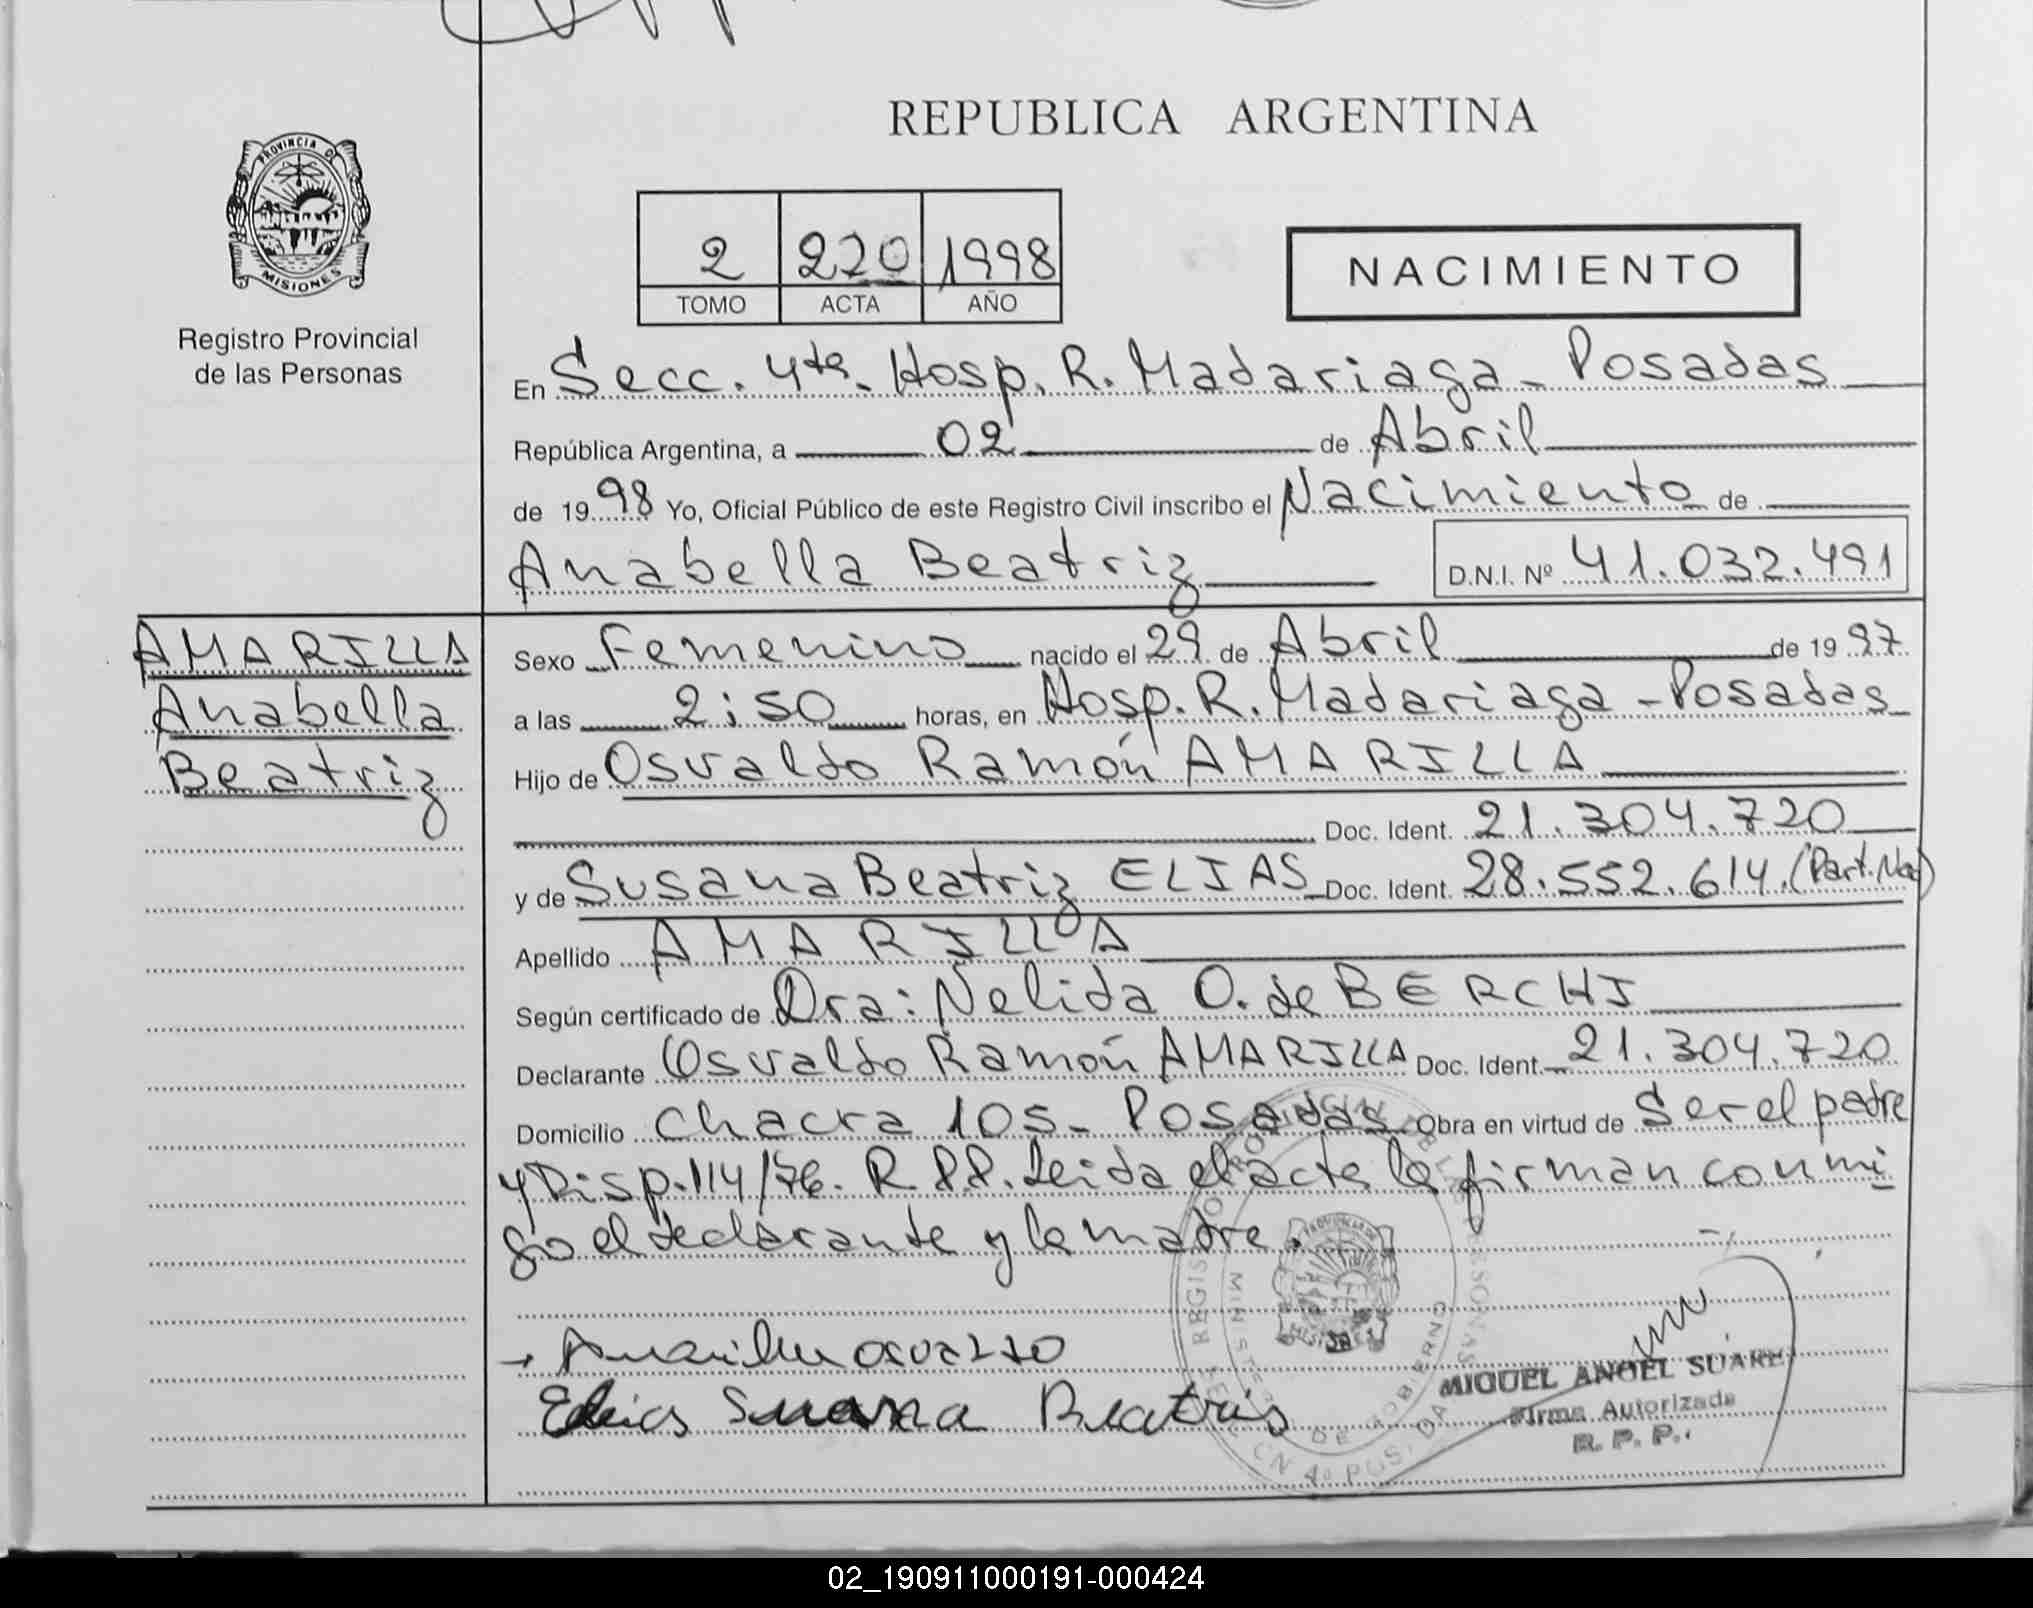 REPUBLICA ARGENTINA
PROVINCIA D
MISIONES
Registro Provincial
de las Personas
2 220 1998
TOMO ACTA AÑO
NACIMIENTO
En Secc. 4ta. Hosp. R. Madariaga - Posadas
República Argentina, a 02 de Abril
de 1998 Yo, Oficial Público de este Registro Civil inscribo el Nacimiento de
Anabella Beatriz D.N.I. Nº 41.032.491
AMARILLA
Anabella
Beatriz
Sexo Femenino nacido el 29 de Abril de 1997
a las 2:50 horas, en Hosp. R. Madariaga - Posadas
Hijo de Osvaldo Ramón AMARILLA
Doc. Ident. 21.304.720
y de Susana Beatriz ELIAS Doc. Ident. 28.552.614. (Part. Nac)
Apellido AMARILLA
Según certificado de Dra: Nelida O. de BERCHI
Declarante Osvaldo Ramón AMARILLA Doc. Ident. 21.304.720
Domicilio Chacra 105 - Posadas Obra en virtud de Ser el padre
y Disp. 114/76. R.P.P. Leida el acta la firman conmi
go el declarante y la madre.
Amarilla osvaldo
Elias Susana Beatris
MIGUEL ANGEL SUARE
Firma Autorizada
R. P. P.
02_190911000191-000424